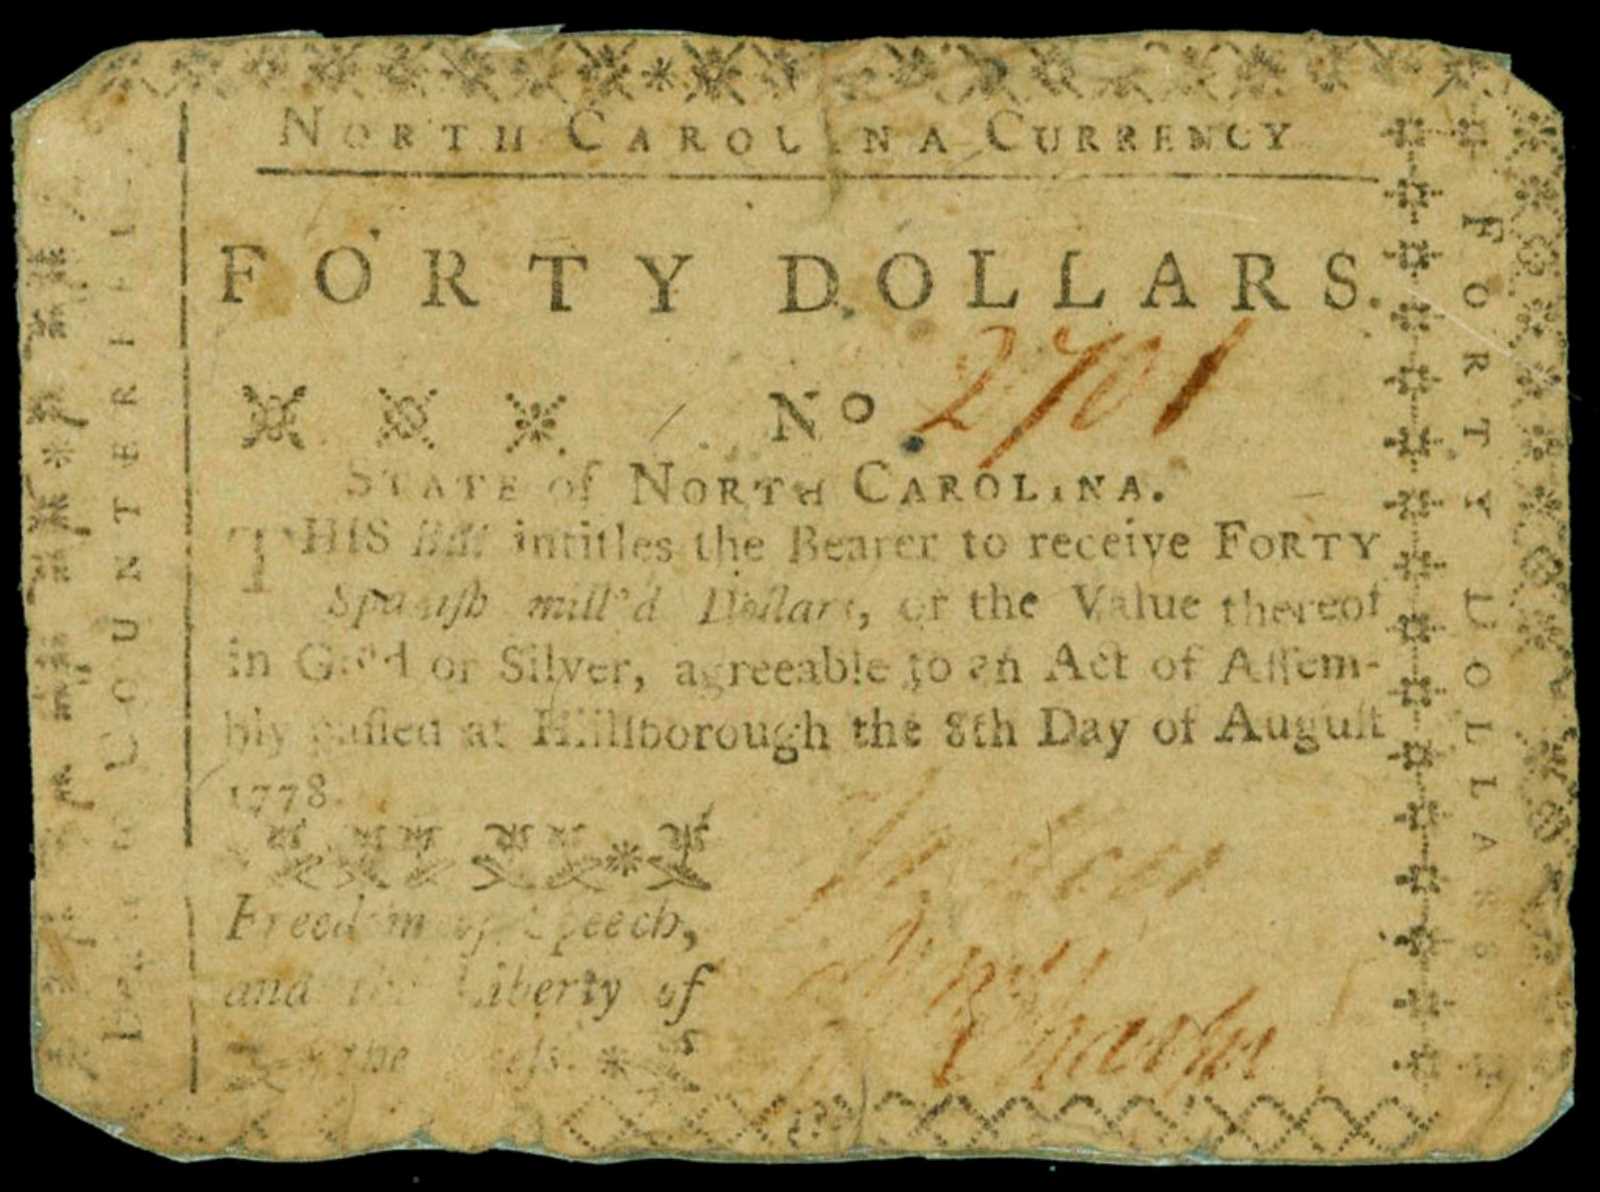 NORTH CAROLINA CURRENCY
FORTY DOLLARS.
No. 2701
STATE of NORTH CAROLINA.
THIS Bill intitles the Bearer to receive FORTY
Spaniſh mill'd Dollars, or the Value thereof
in Gold or Silver, agreeable to an Act of Aſſem-
bly paſſed at Hillſborough the 8th Day of Auguſt
1778.
Freedom of Speech,
and the Liberty of
the Preſs.
COUNTERFEIT
FORTY DOLLARS